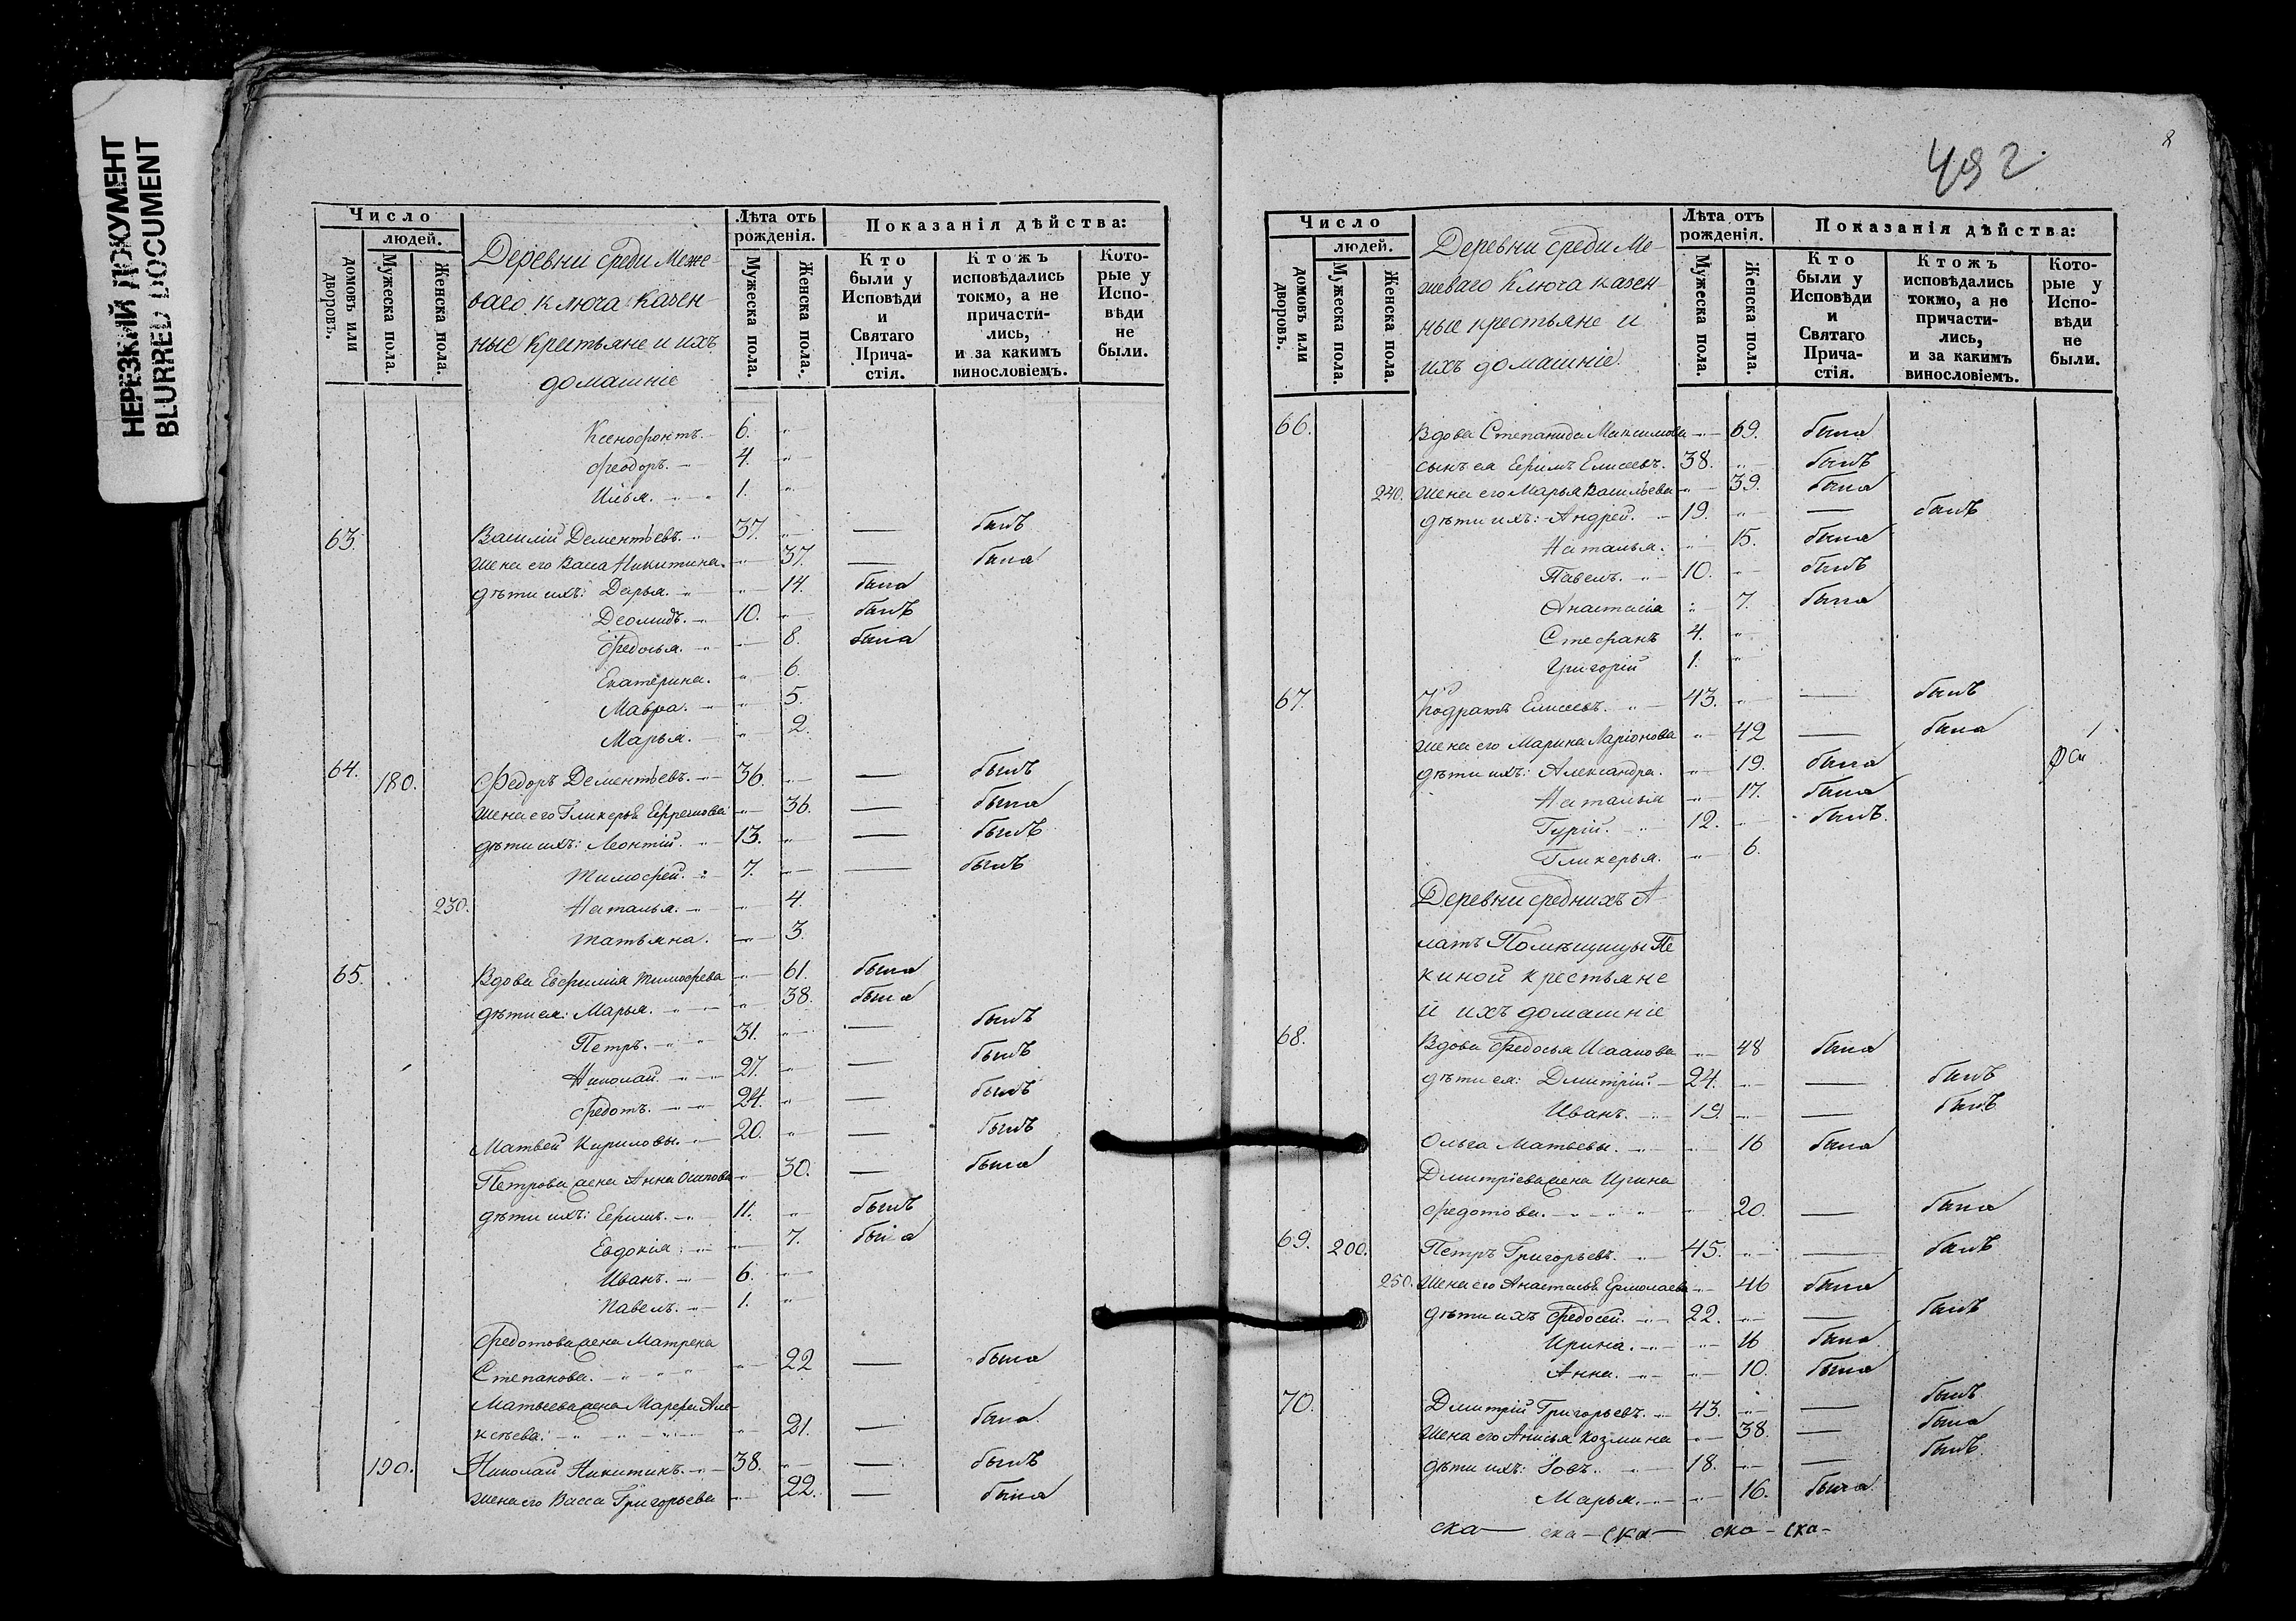 НЕРЕЗКИЙ ДОКУМЕНТ
BLURRED DOCUMENT
Число
людей.
домовъ или дворовъ.
Мужеска пола.
Женска пола.
Деревни среди Меже-
ваго ключа казен-
ные крестьяне и ихъ
домашніе
Лѣта отъ рожденія.
Мужеска пола.
Женска пола.
Показанія дѣйства:
Кто были у Исповѣди и Святаго Прича-стія.
Ктожъ исповѣдались токмо, а не причасти-лись, и за какимъ винословіемъ.
Кото-рые у Испо-вѣди не были.
Ксенофонтъ. 6.
Феодоръ. 4.
Илья. 1.
63. Василій Дементьевъ. 37. — былъ
жена его Васа Никитина. 37. — была
дѣти ихъ: Дарья. 14. была
Деомидъ. 10. былъ
Федосья. 8. была
Екатерина. 6.
Мавра. 5.
Марья. 2.
64. 180. Федоръ Дементьевъ. 36. — былъ
жена его Гликерья Ефремова 36. — была
дѣти ихъ: Леонтій. 13. — былъ
Тимофей. 7. — былъ
230. Наталья. 4.
Татьяна. 3.
65. Вдова Евфимія Тимофева 61. была
дѣти ея: Марья. 38. была
Петръ. 31. — былъ
Николай. 27. — былъ
Федотъ. 24. — былъ
Матвей Кириловы. 20. — былъ
Петрова жена Анна Осипова 30. — была
дѣти ихъ: Ефимъ. 11. былъ
Евдокія. 7. была
Иванъ. 6.
Павелъ. 1.
Федотова жена Матрена
Степанова. 22 — была
Матвеева жена Марфа Але-
ксѣева. 21. — была.
190. Николай Никитинъ. 38. — былъ
жена его Васса Григорьева 22. — была
8
492
Число
людей.
домовъ или дворовъ.
Мужеска пола.
Женска пола.
Деревни среди Ме-
жеваго Ключа казен-
ные крестьяне и
ихъ домашніе.
Лѣта отъ рожденія.
Мужеска пола.
Женска пола.
Показанія дѣйства:
Кто были у Исповѣди и Святаго Прича-стія.
Ктожъ исповѣдались токмо, а не причасти-лись, и за какимъ винословіемъ.
Кото-рые у Испо-вѣди не были.
66. Вдова Степанида Максимова 69. была
сынъ ея Ефимъ Елисеевъ. 38. былъ
240. жена его Марья Васильева 39. была
дѣти ихъ: Андрей. 19. — былъ
Наталья. 15. была
Павелъ. 10. былъ
Анастасія 7. была
Стефанъ 4.
Григорій 1.
67. Кодратъ Елисеевъ. 43. — былъ
жена его Марина Ларіонова 42 — была
дѣти ихъ: Александра. 19. была
Наталья 17. была
Гурій. 12. былъ.
Гликерья. 6.
Деревни среднихъ А-
латъ Помѣщицы Пе
киной крестьяне
и ихъ домашніе
68. Вдова Федосья Исаакова 48 была
дѣти ея: Дмитрій. 24. — былъ
Иванъ. 19. — былъ
Ольга Матвевы. 16 была
Дмитріева жена Ирина
Федотова. 20. — была
69. 200. Петръ Григорьевъ. 45. — былъ
250. жена его Анастасья Ермолаева 46 была
дѣти ихъ Федосей. 22. — былъ
Ирина. 16 была
Анна. 10. была
70. Дмитрій Григорьевъ. 43. — былъ
жена его Анисья Козмина 38. — была
дѣти ихъ: Іовъ. 18. — былъ
Марья. 16. была
ска — ска — ска — ска — ска —